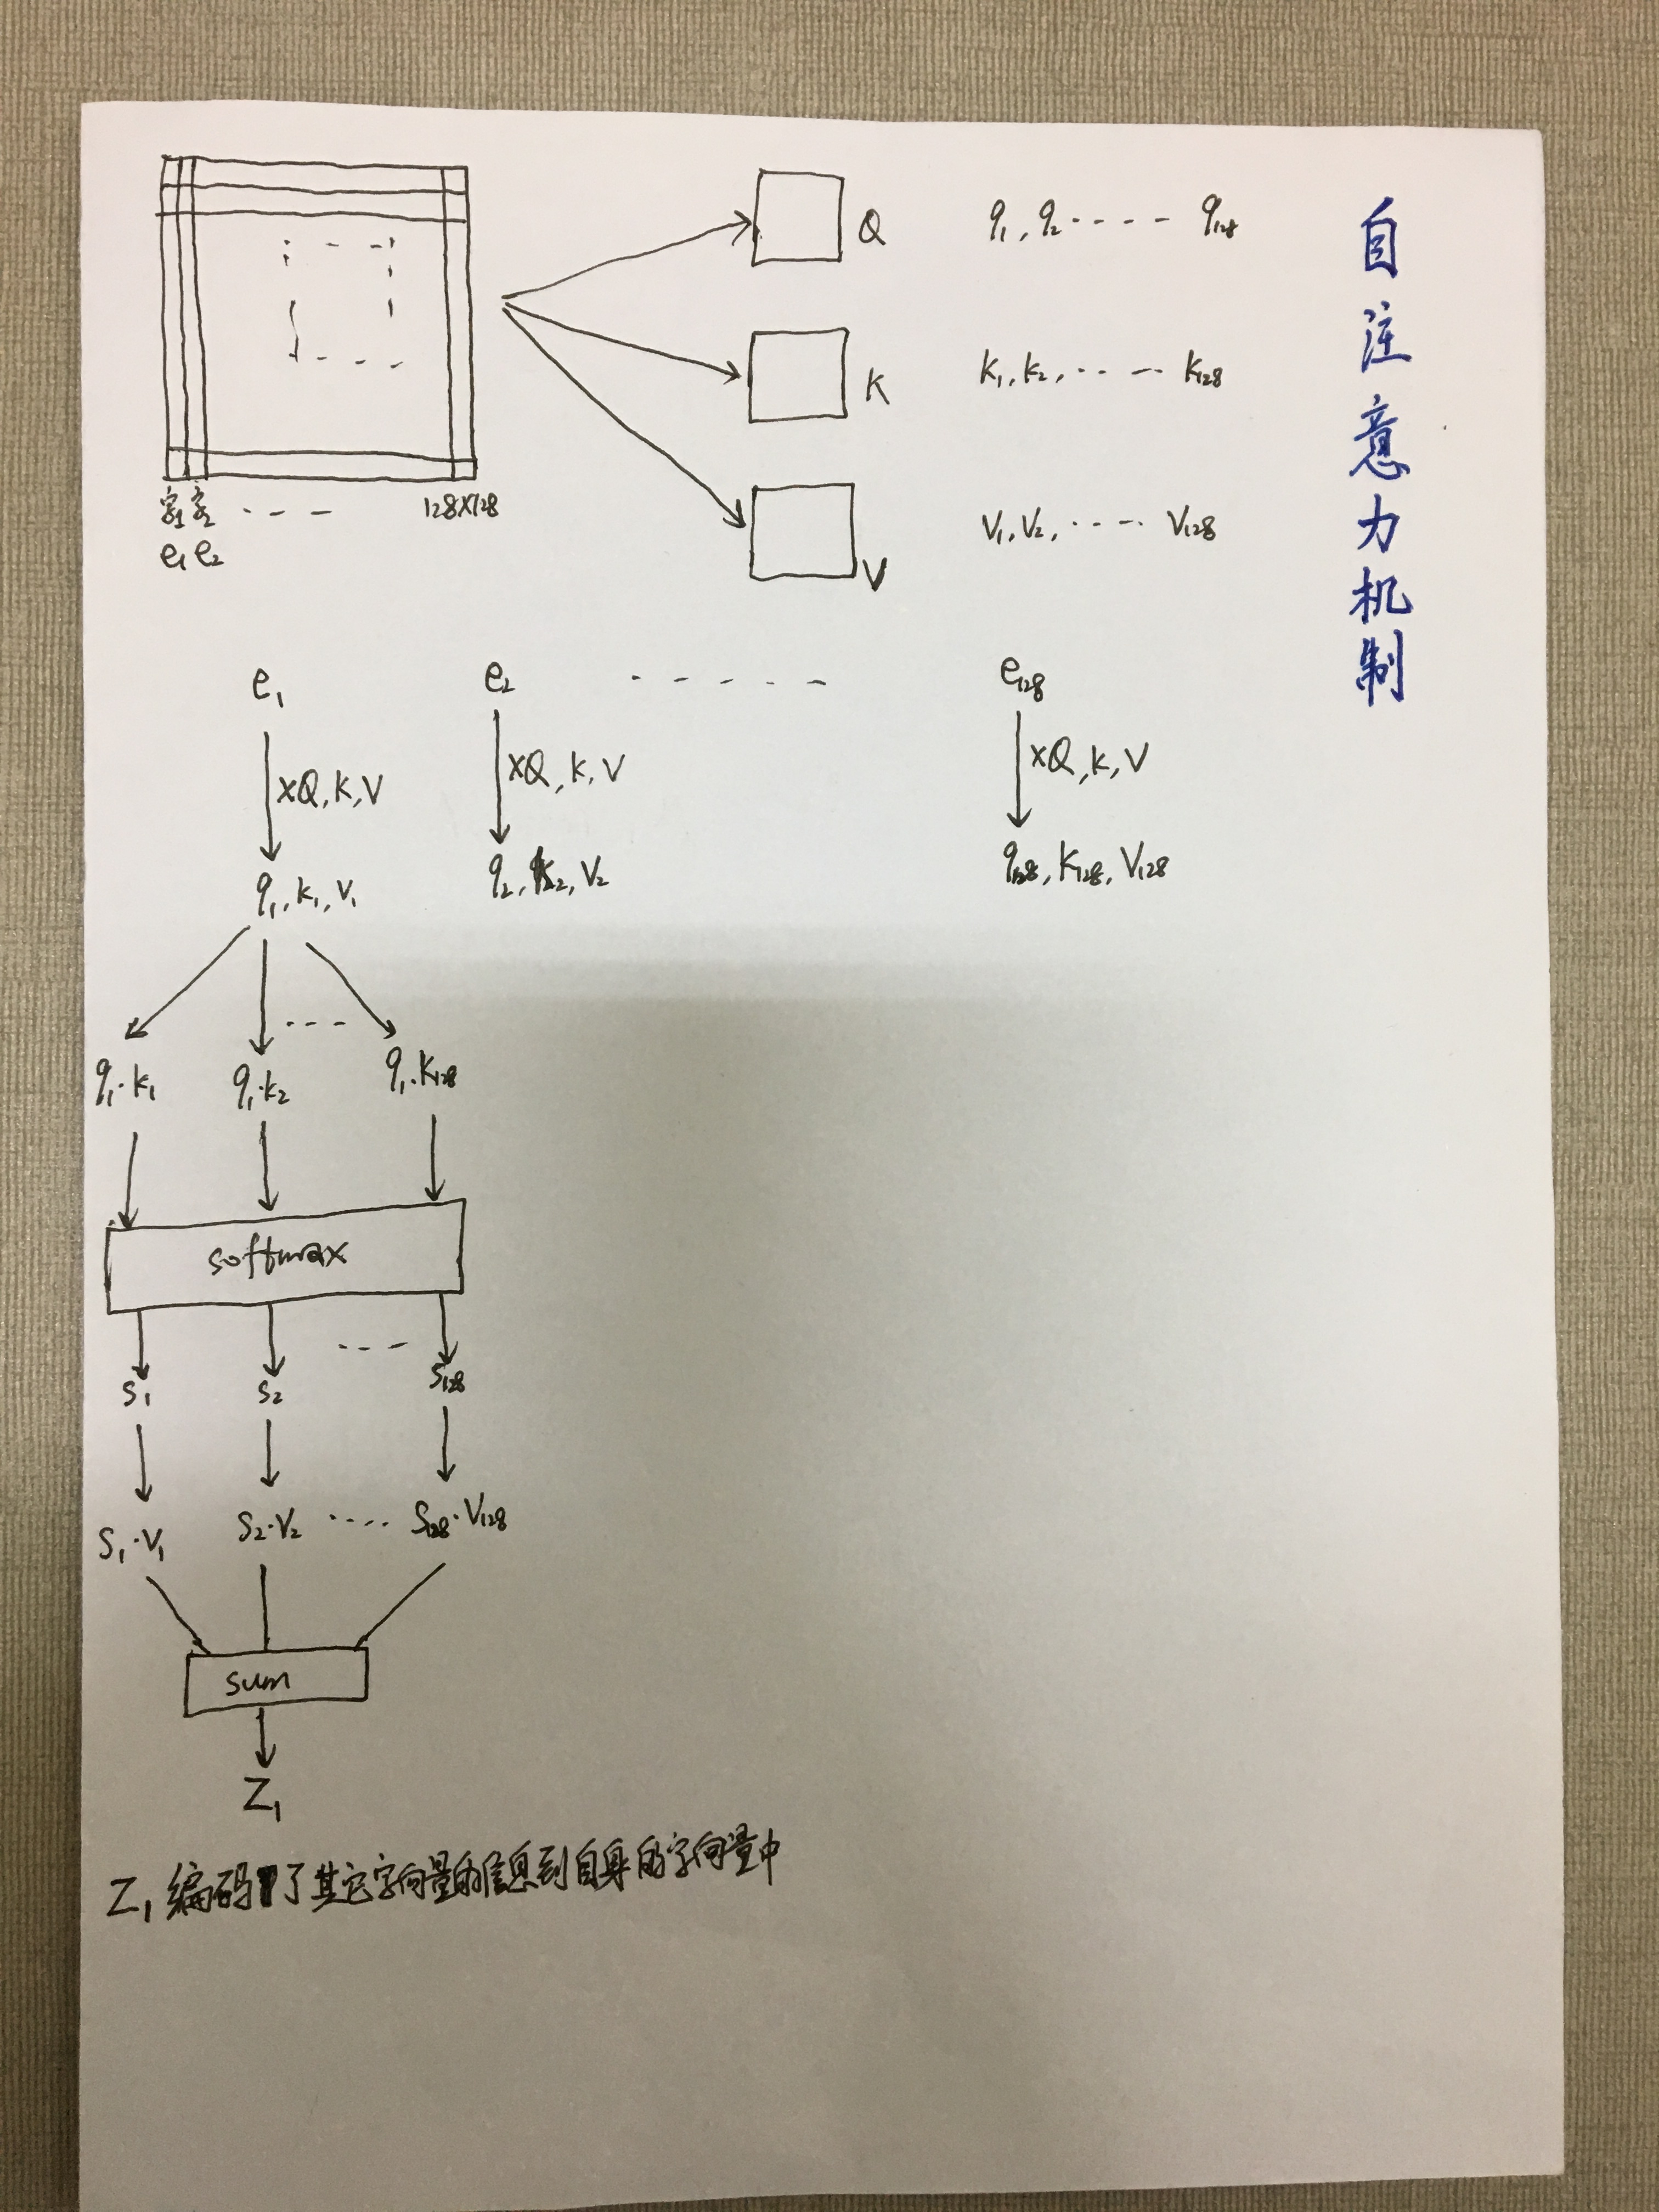 自注意力机制
Q q₁, q₂ ---- q₁₂₈
K k₁, k₂, ---- k₁₂₈
V v₁, v₂, ---- v₁₂₈
字₁ 字₂ --- 128×128
e₁ e₂
e₁ e₂ ----- e₁₂₈
×Q, K, V ×Q, K, V ×Q, K, V
q₁, k₁, v₁ q₂, k₂, v₂ q₁₂₈, k₁₂₈, v₁₂₈
---
q₁·k₁ q₁·k₂ q₁·k₁₂₈
softmax
---
s₁ s₂ s₁₂₈
s₁·v₁ s₂·v₂ ---- s₁₂₈·v₁₂₈
sum
Z₁
Z₁ 编码了其它字向量的信息到自身的字向量中